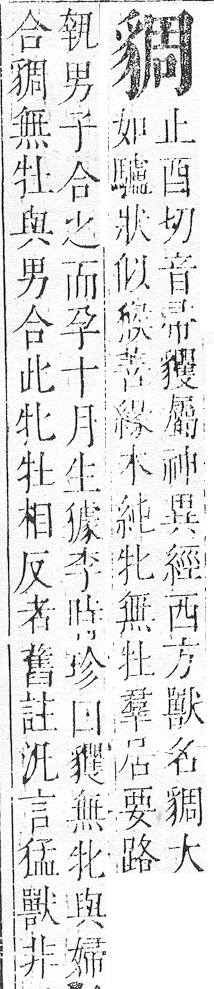 貂
止酉切音帚貜屬神異經西方獸名貂大
如驢狀似猴善緣木純牝無牡羣居要路
執男子合之而孕十月生據李時珍曰貜無牝與婦
合貂無牡與男合此牝牡相反者舊註汎言猛獸非